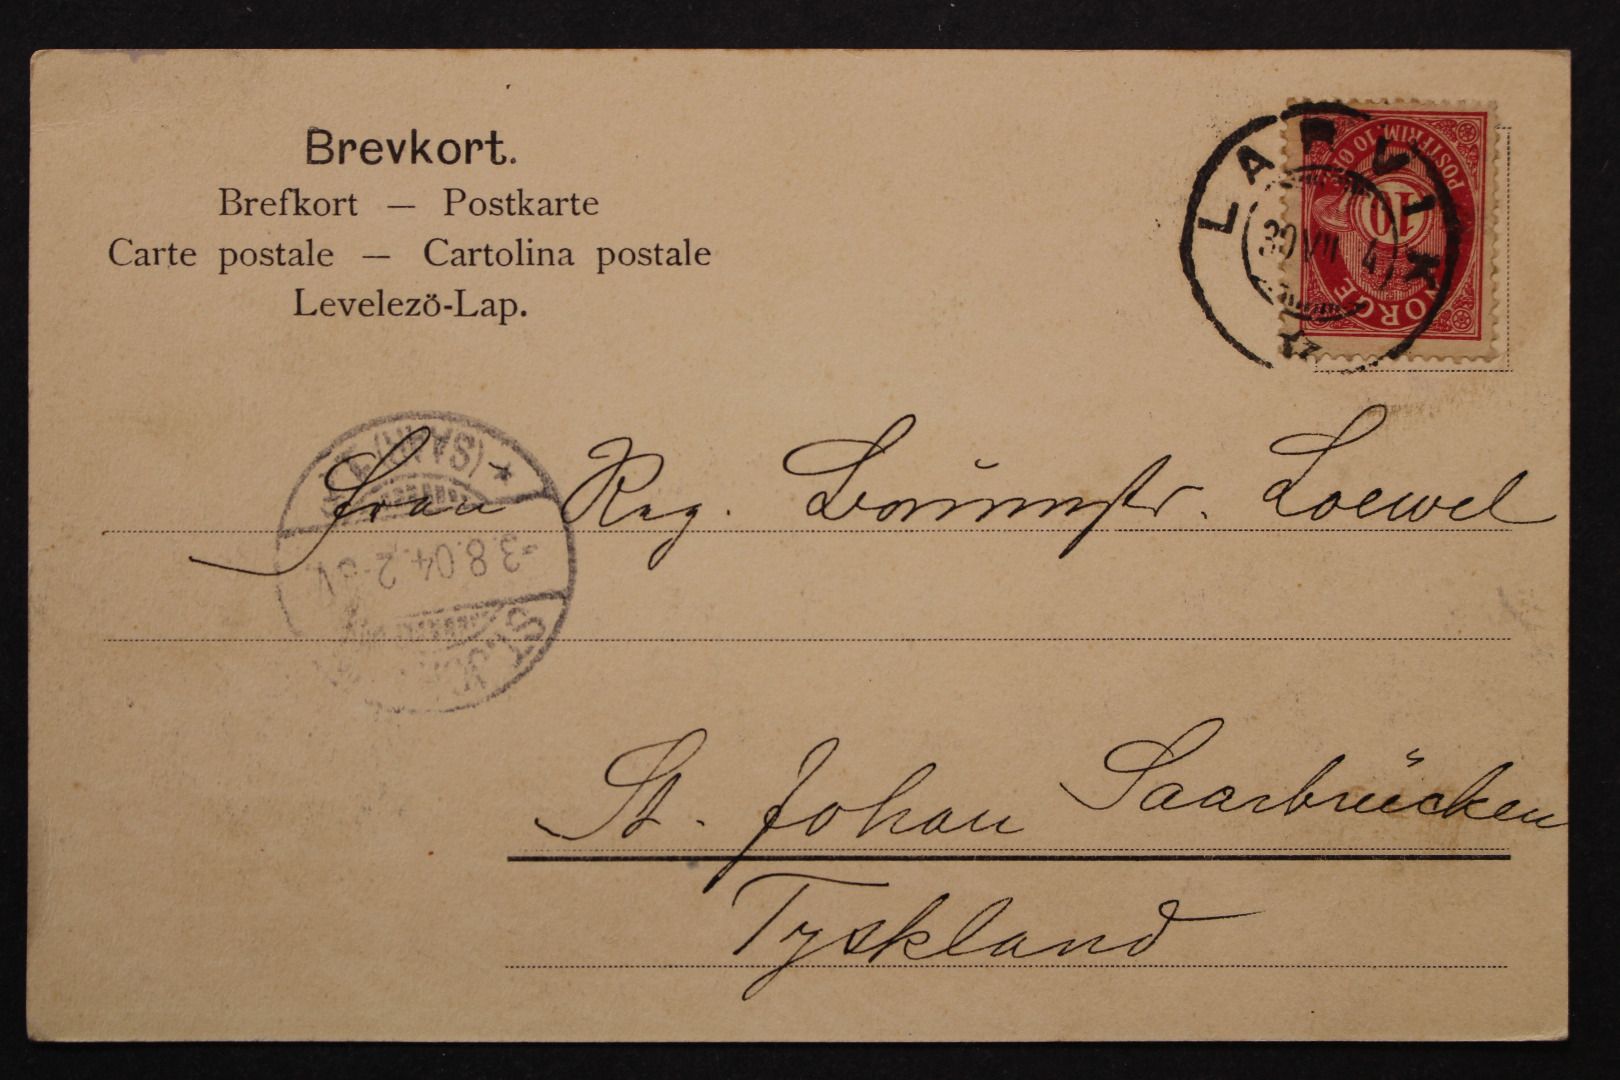 Brevkort.
Brefkort — Postkarte
Carte postale — Cartolina postale
Levelezö-Lap.
LARVIK
30 VII 4
POSTFRIM. 10 ØRE
10
NORGE
(SAAR)
-3.8.04. 2-3V.
ST. JOH
Frau Reg. Baumstr. Loewel
St. Johan Saarbrücken
Tyskland